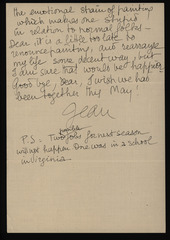 the emotional stain of painting
which makes one stupid
in relation to normal folks -
Dear, it is a little too late to
renounce painting, and rearrange
my life some decent way, but
I am sure that would be happier
Good bye, Dear, I wish we has
been together this May!
Jean
P.S. Two jobs for next season
will not happen. One was in a school
in Virginia.